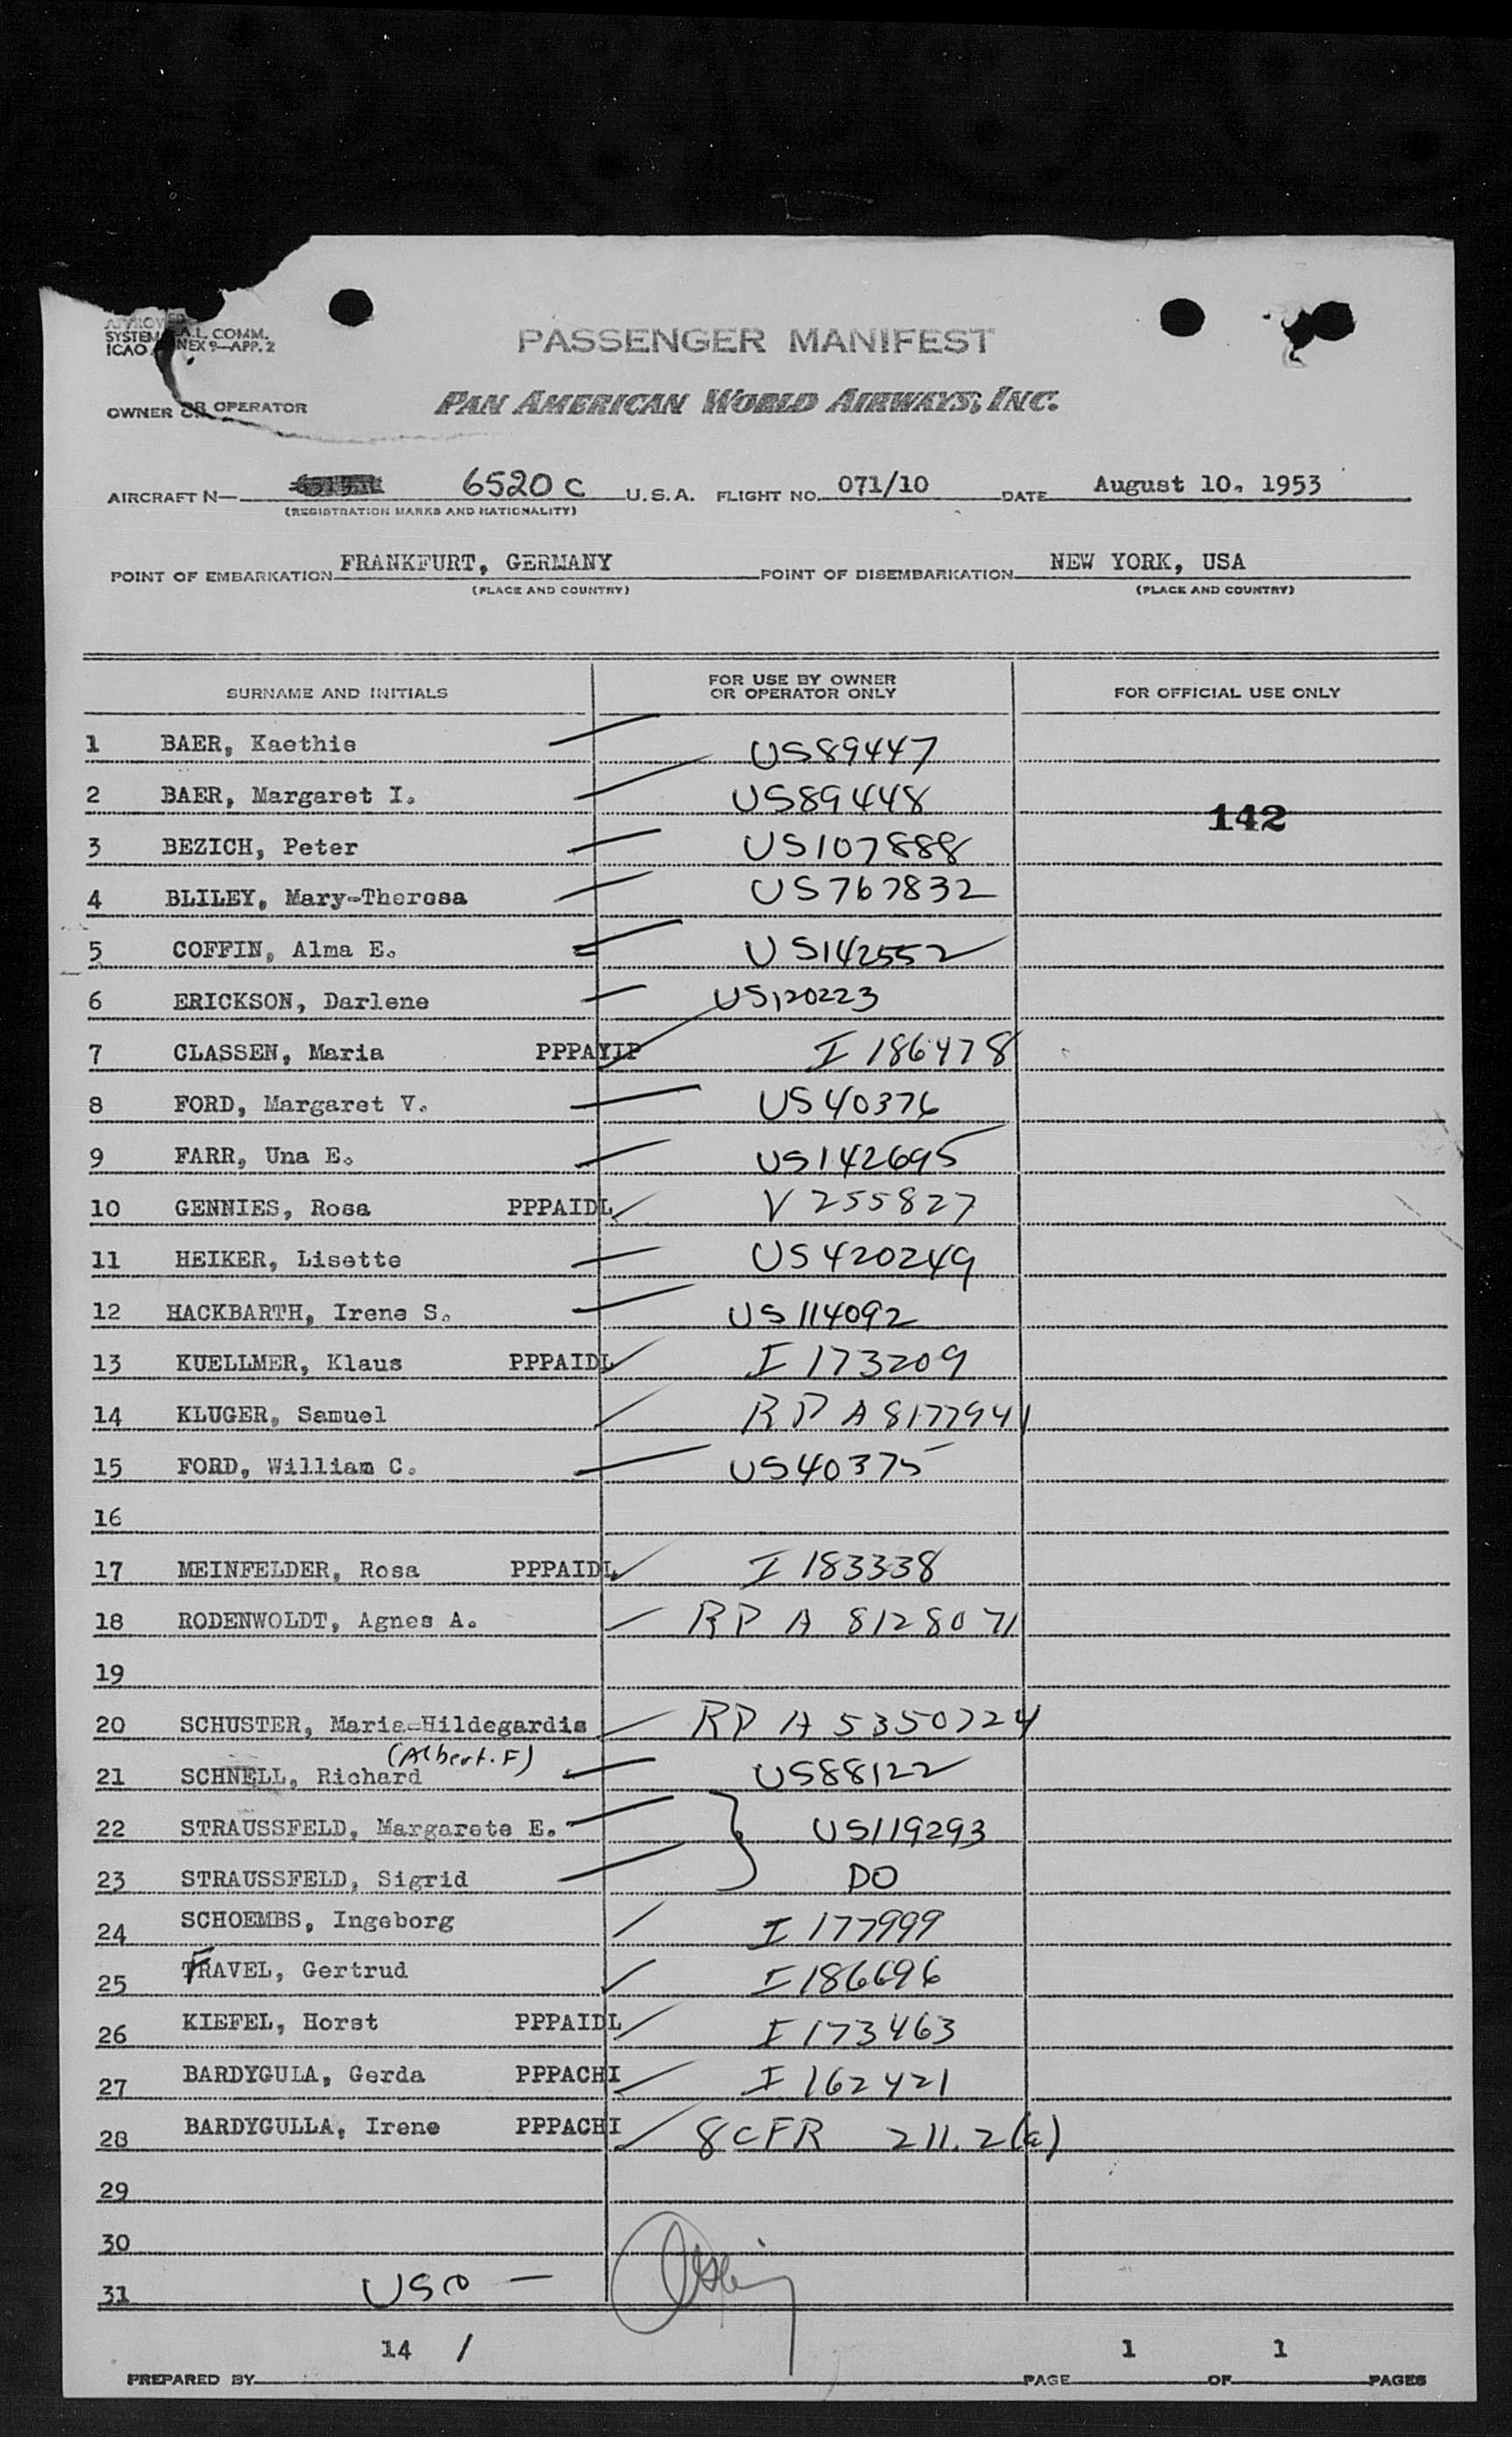 APPROVED
SYSTEM A.L. COMM.
ICAO ANNEX 9—APP. 2
PASSENGER MANIFEST
OWNER OR OPERATOR PAN AMERICAN WORLD AIRWAYS, INC.
AIRCRAFT N— 6520 C U.S.A. FLIGHT NO. 071/10 DATE August 10, 1953
(REGISTRATION MARKS AND NATIONALITY)
POINT OF EMBARKATION FRANKFURT, GERMANY POINT OF DISEMBARKATION NEW YORK, USA
(PLACE AND COUNTRY) (PLACE AND COUNTRY)
SURNAME AND INITIALS FOR USE BY OWNER OR OPERATOR ONLY FOR OFFICIAL USE ONLY
1 BAER, Kaethie US89447
2 BAER, Margaret I. US89448
142
3 BEZICH, Peter US107888
4 BLILEY, Mary-Theresa US767832
5 COFFIN, Alma E. US142552
6 ERICKSON, Darlene US120223
7 CLASSEN, Maria PPPAYIP I 186478
8 FORD, Margaret V. US40376
9 FARR, Una E. US142695
10 GENNIES, Rosa PPPAIDL V 255827
11 HEIKER, Lisette US420249
12 HACKBARTH, Irene S. US114092
13 KUELLMER, Klaus PPPAIDL I 173209
14 KLUGER, Samuel RP A8177941
15 FORD, William C. US40375
16
17 MEINFELDER, Rosa PPPAIDL I 183338
18 RODENWOLDT, Agnes A. RP A 8128071
19
20 SCHUSTER, Maria-Hildegardis RP A 5350724
(Albert. F)
21 SCHNELL, Richard US88122
22 STRAUSSFELD, Margarete E. US119293
23 STRAUSSFELD, Sigrid DO
24 SCHOEMBS, Ingeborg I 177999
25 FRAVEL, Gertrud I 186696
26 KIEFEL, Horst PPPAIDL I 173463
27 BARDYGULA, Gerda PPPACHI I 162421
28 BARDYGULLA, Irene PPPACHI 8CFR 211.2(a)
29
30
31 USC —
14 / 1 1
PREPARED BY PAGE OF PAGES